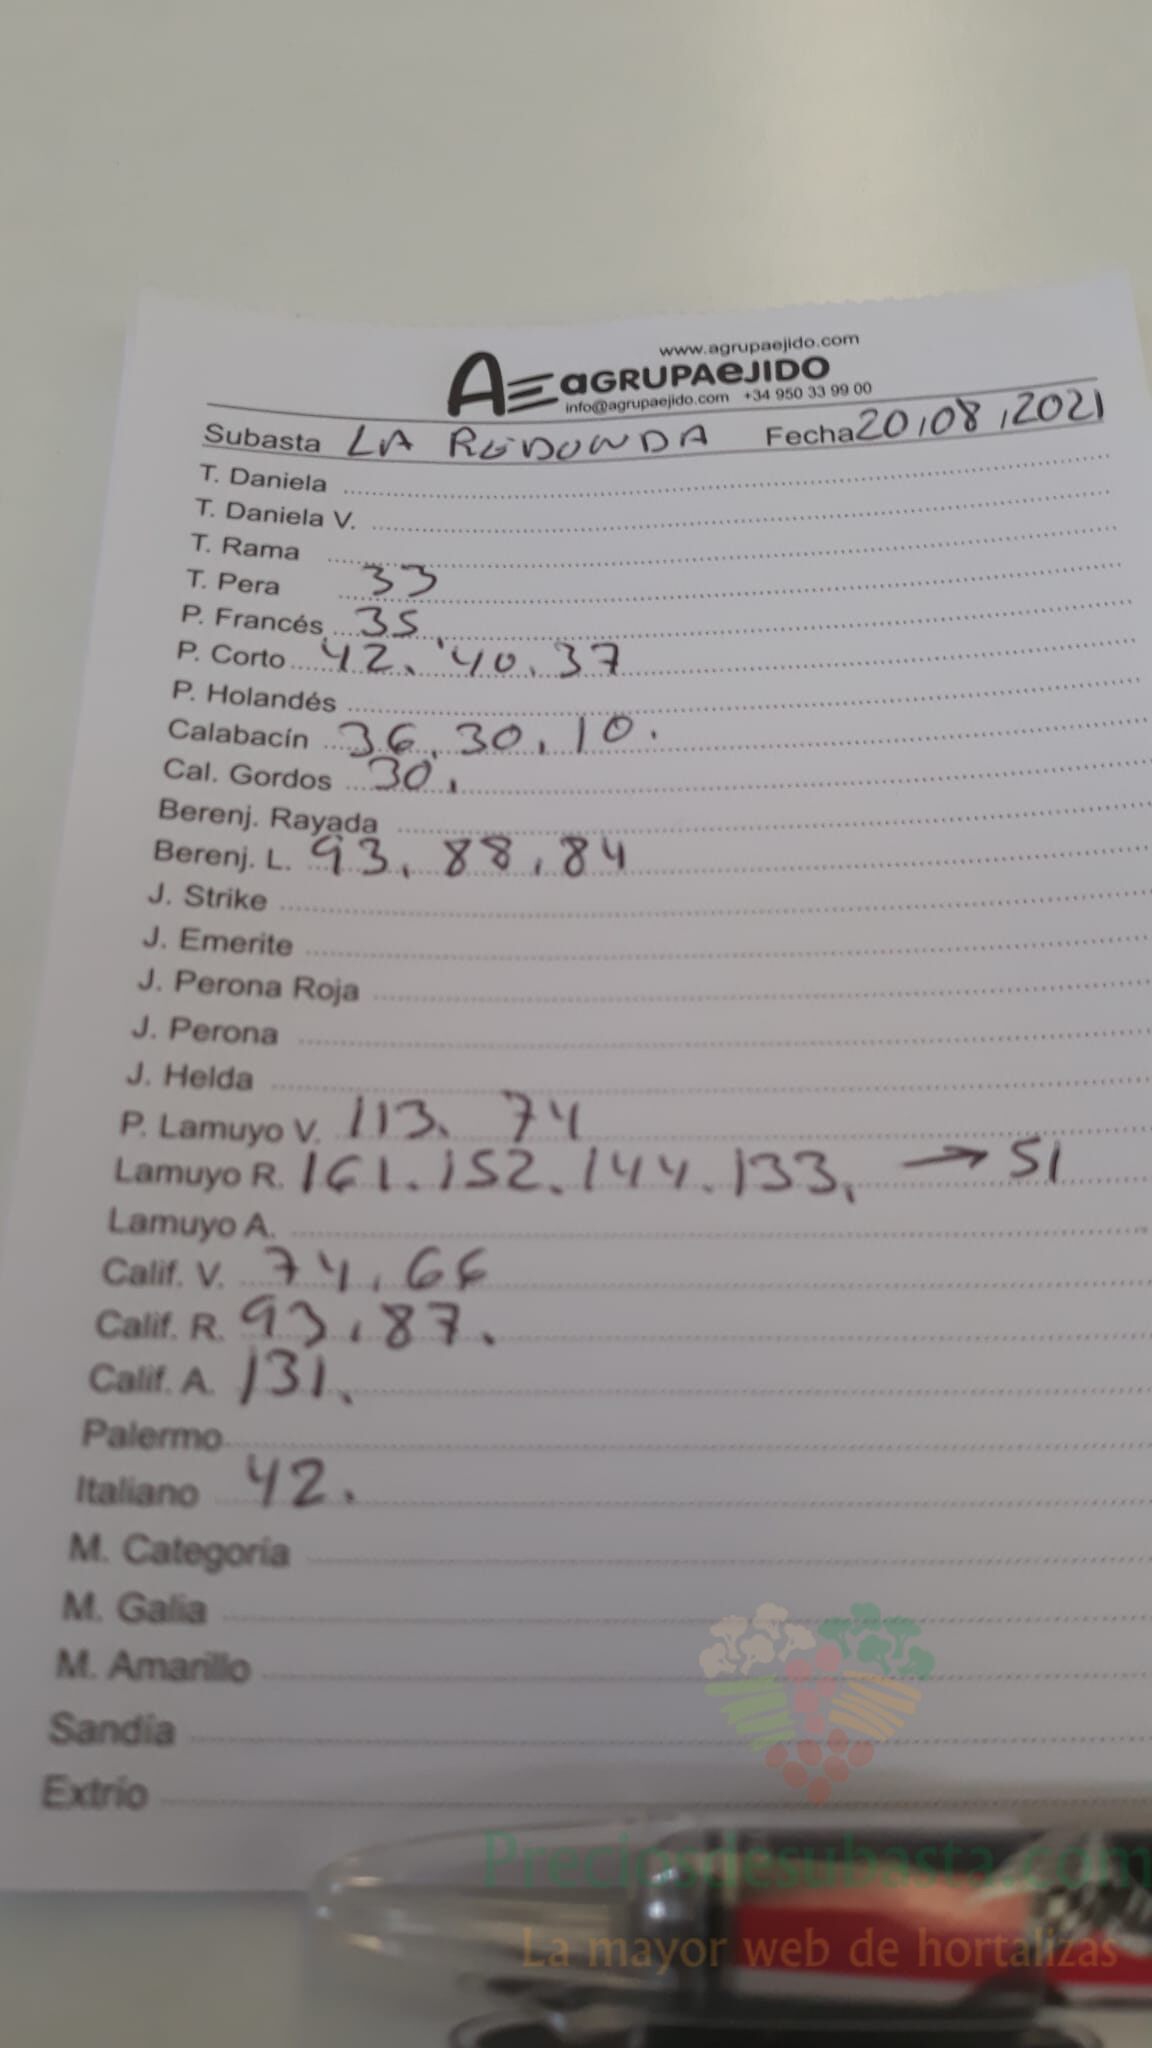 www.agrupaejido.com
AE aGRUPAeJIDO
info@agrupaejido.com +34 950 33 99 00
Subasta LA REDONDA Fecha 20,08,2021
T. Daniela
T. Daniela V.
T. Rama
T. Pera 33
P. Francés 35.
P. Corto 42. 40. 37
P. Holandés
Calabacín 36. 30. 10.
Cal. Gordos 30.
Berenj. Rayada
Berenj. L. 93, 88, 84
J. Strike
J. Emerite
J. Perona Roja
J. Perona
J. Helda
P. Lamuyo V. 113. 74
Lamuyo R. 161. 152. 144. 133, → 51
Lamuyo A.
Calif. V. 74, 66
Calif. R. 93, 87.
Calif. A. 131.
Palermo
Italiano 42.
M. Categoria
M. Galia
M. Amarillo
Sandía
Extrio
Preciosdesubasta.com
La mayor web de hortalizas